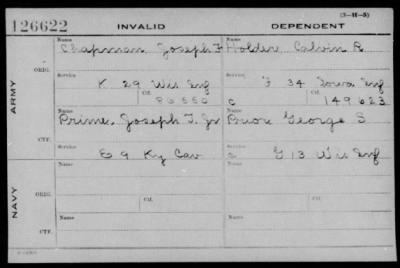 (3-H-5)
126622 INVALID DEPENDENT
Name Name
ARMY ORIG. Chapman, Joseph F Holder, Calvin R
Service Service
K 29 Wis Inf F 34 Iowa Inf
Ctf. Ctf.
C 149623
Name Name
CTF. Prime, Joseph T. Jr George S
Service Service
E 9 Ky Cav G 13 Wis Inf
Name Name
NAVY ORIG.
Service Ctf. Service Ctf.
Name Name
CTF.
Service Service